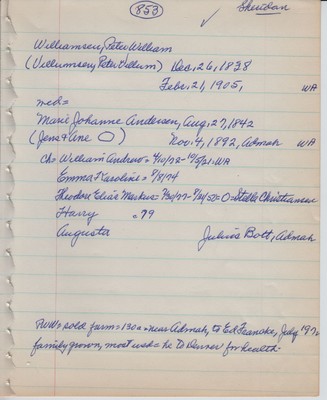 853
Sheridan
Williamsen, Peter William
(Villumsen, Peter Villum) Dec. 26, 1838
Febr. 21, 1905, WA
md=
Marie Johanne Andersen, Aug. 27, 1842
(Jens & Ane) Nov. 4, 1892, Admah WA
Ch= William Andrew=
Emma Karoline= 9/8/74
Theodore Elias Markus= =Stella Christiansen
Harry c. 79
Augusta Julius Bott, Admah
PWW= sold farm= 130a= near Admah, to Ed Francke, July
family grown, most wed= he to Denver for health-